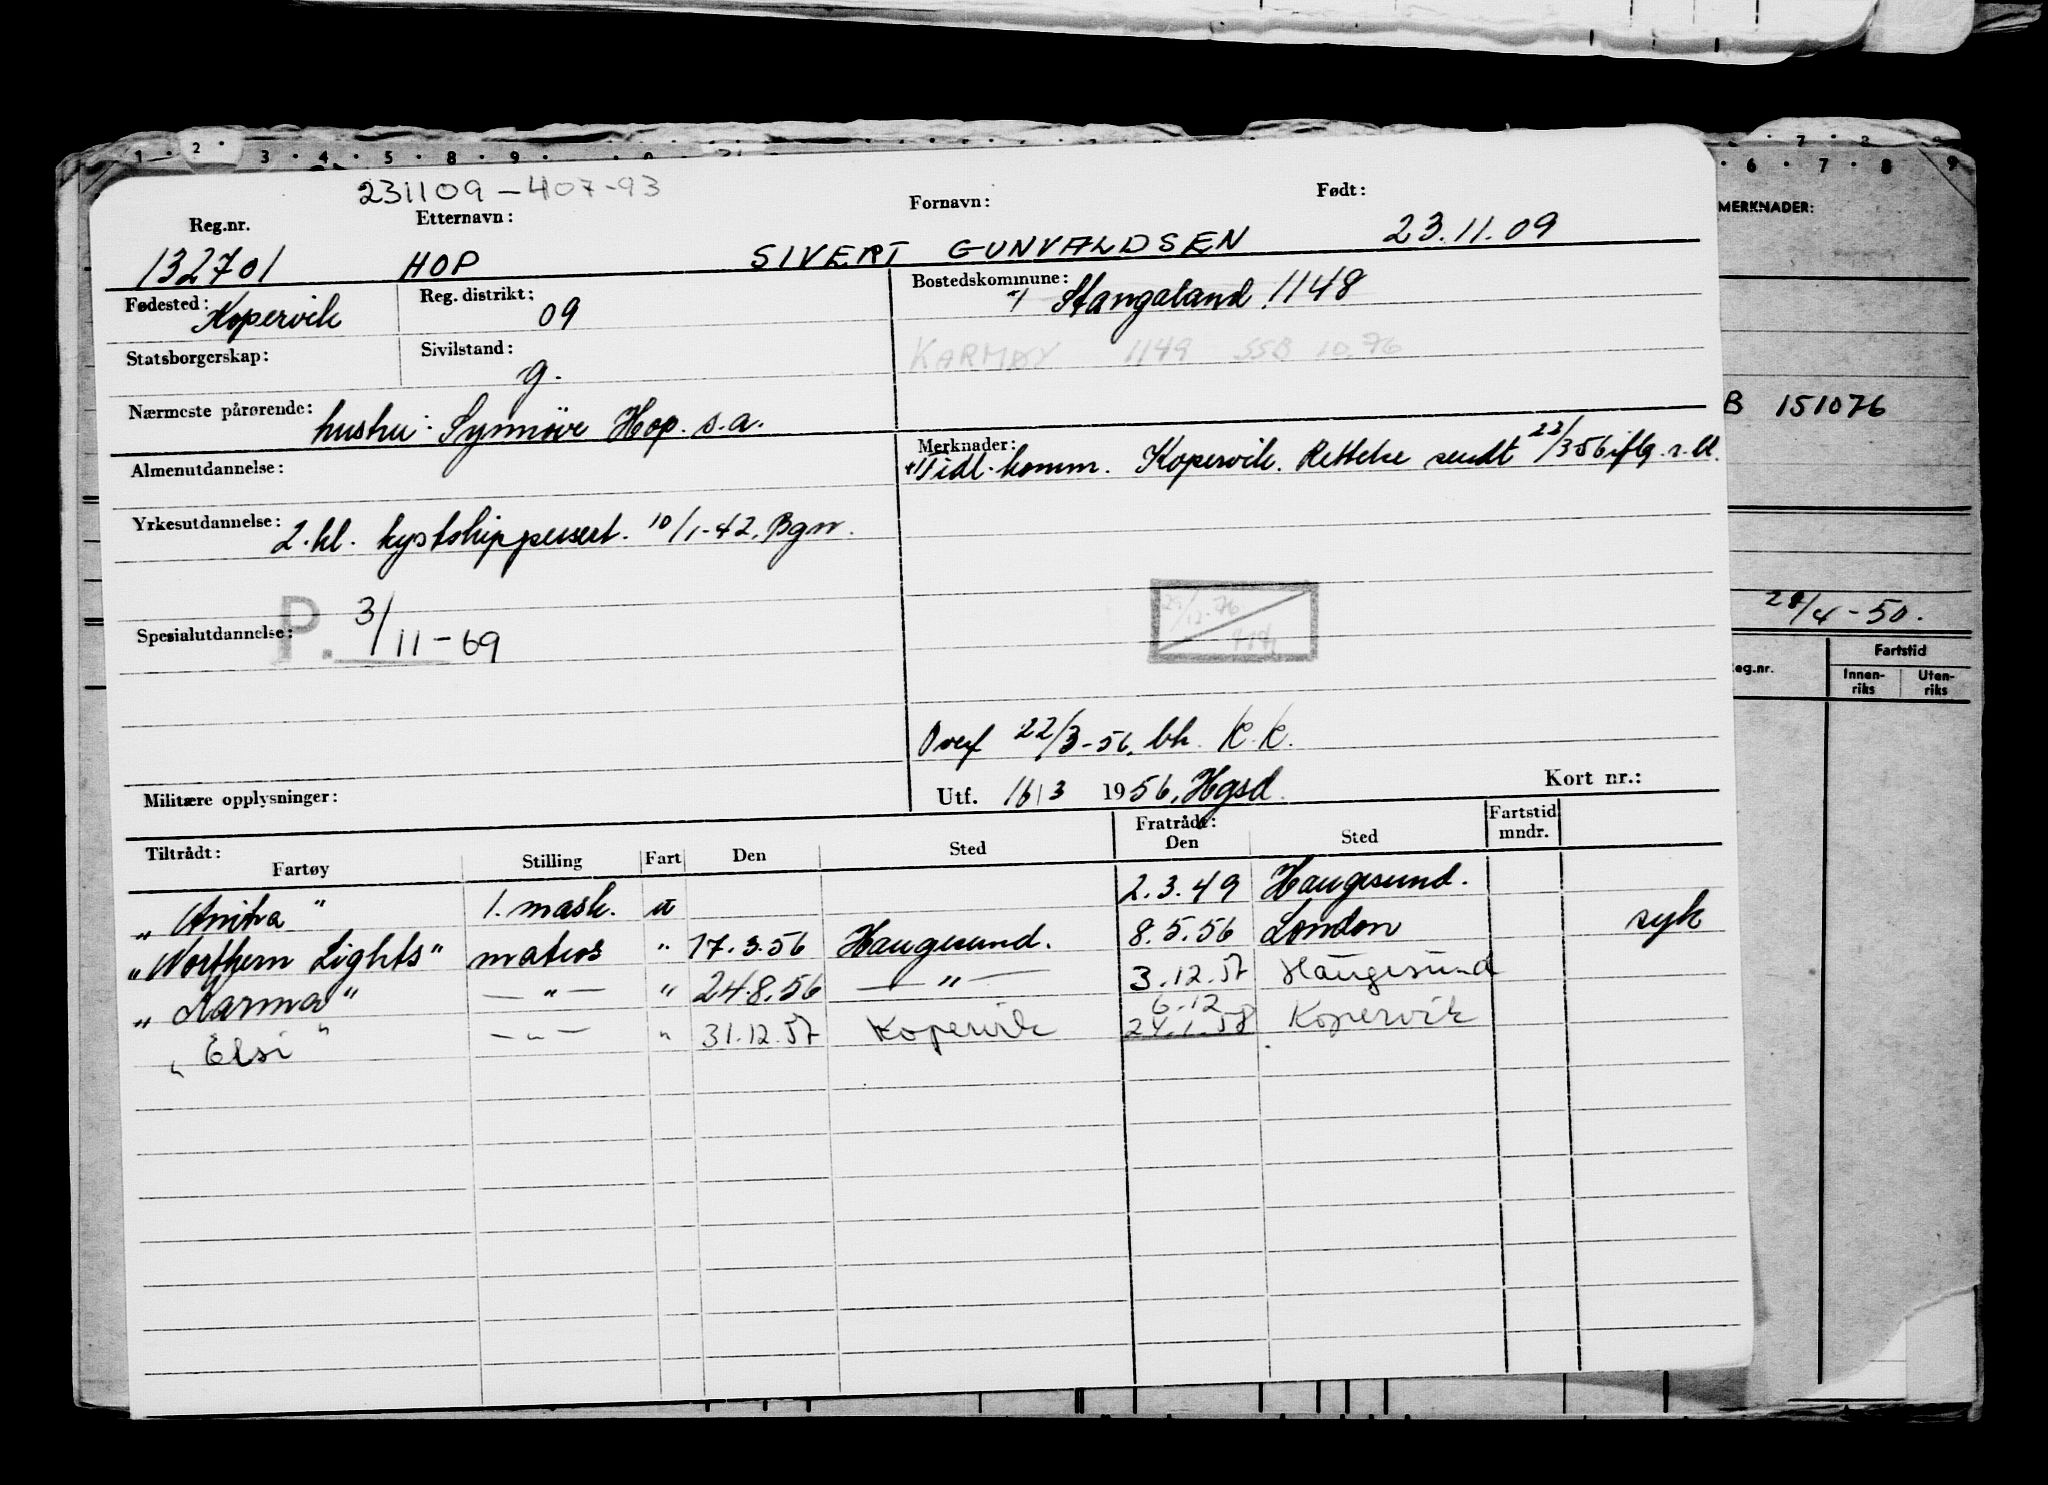 1 · 2 · 3 · 4 · 5 · 8 · 9 ·
7 8
6 · 7 · 8 9
231109 - 407-93
Reg.nr. Etternavn: Fornavn: Født:
132701 HOP SIVERT GUNVALDSEN 23.11.09
Fødested: Kopervik Reg. distrikt: 09 Bostedskommune: Stangaland 1148
Statsborgerskap: Sivilstand: g. KARMØY 1149 SSB 10.76
Nærmeste pårørende: hustru: Synnöve Hop. s.a.
Almenutdannelse: Merknader: Tidl. komm. Kopervik. Rettelse sendt 22/3 56 iflg. r.bl.
Yrkesutdannelse: 2. kl. kystskippersert. 10/1-42. Bgn.
Spesialutdannelse: P. 3/11-69
Overf 22/3-56. bh. K.K.
Militære opplysninger: Utf. 16/3 1956, Hgsd. Kort nr.:
Tiltrådt: Fratrådt: Fartstid mndr.
Fartøy Stilling Fart Den Sted Den Sted
"Anitra" 1. mask. u 2.3.49 Haugesund.
"Northern Lights" matros " 17.3.56 Haugesund. 8.5.56 London syk
"Karma" — " — " 24.8.56 — " — 3.12.57 Haugesund
6.12
"Elsi" — " — " 31.12.57 Kopervik 24.1.58 Kopervik
MERKNADER:
B 151076
28/4-50.
eg.nr. Fartstid
Innen-riks Uten-riks